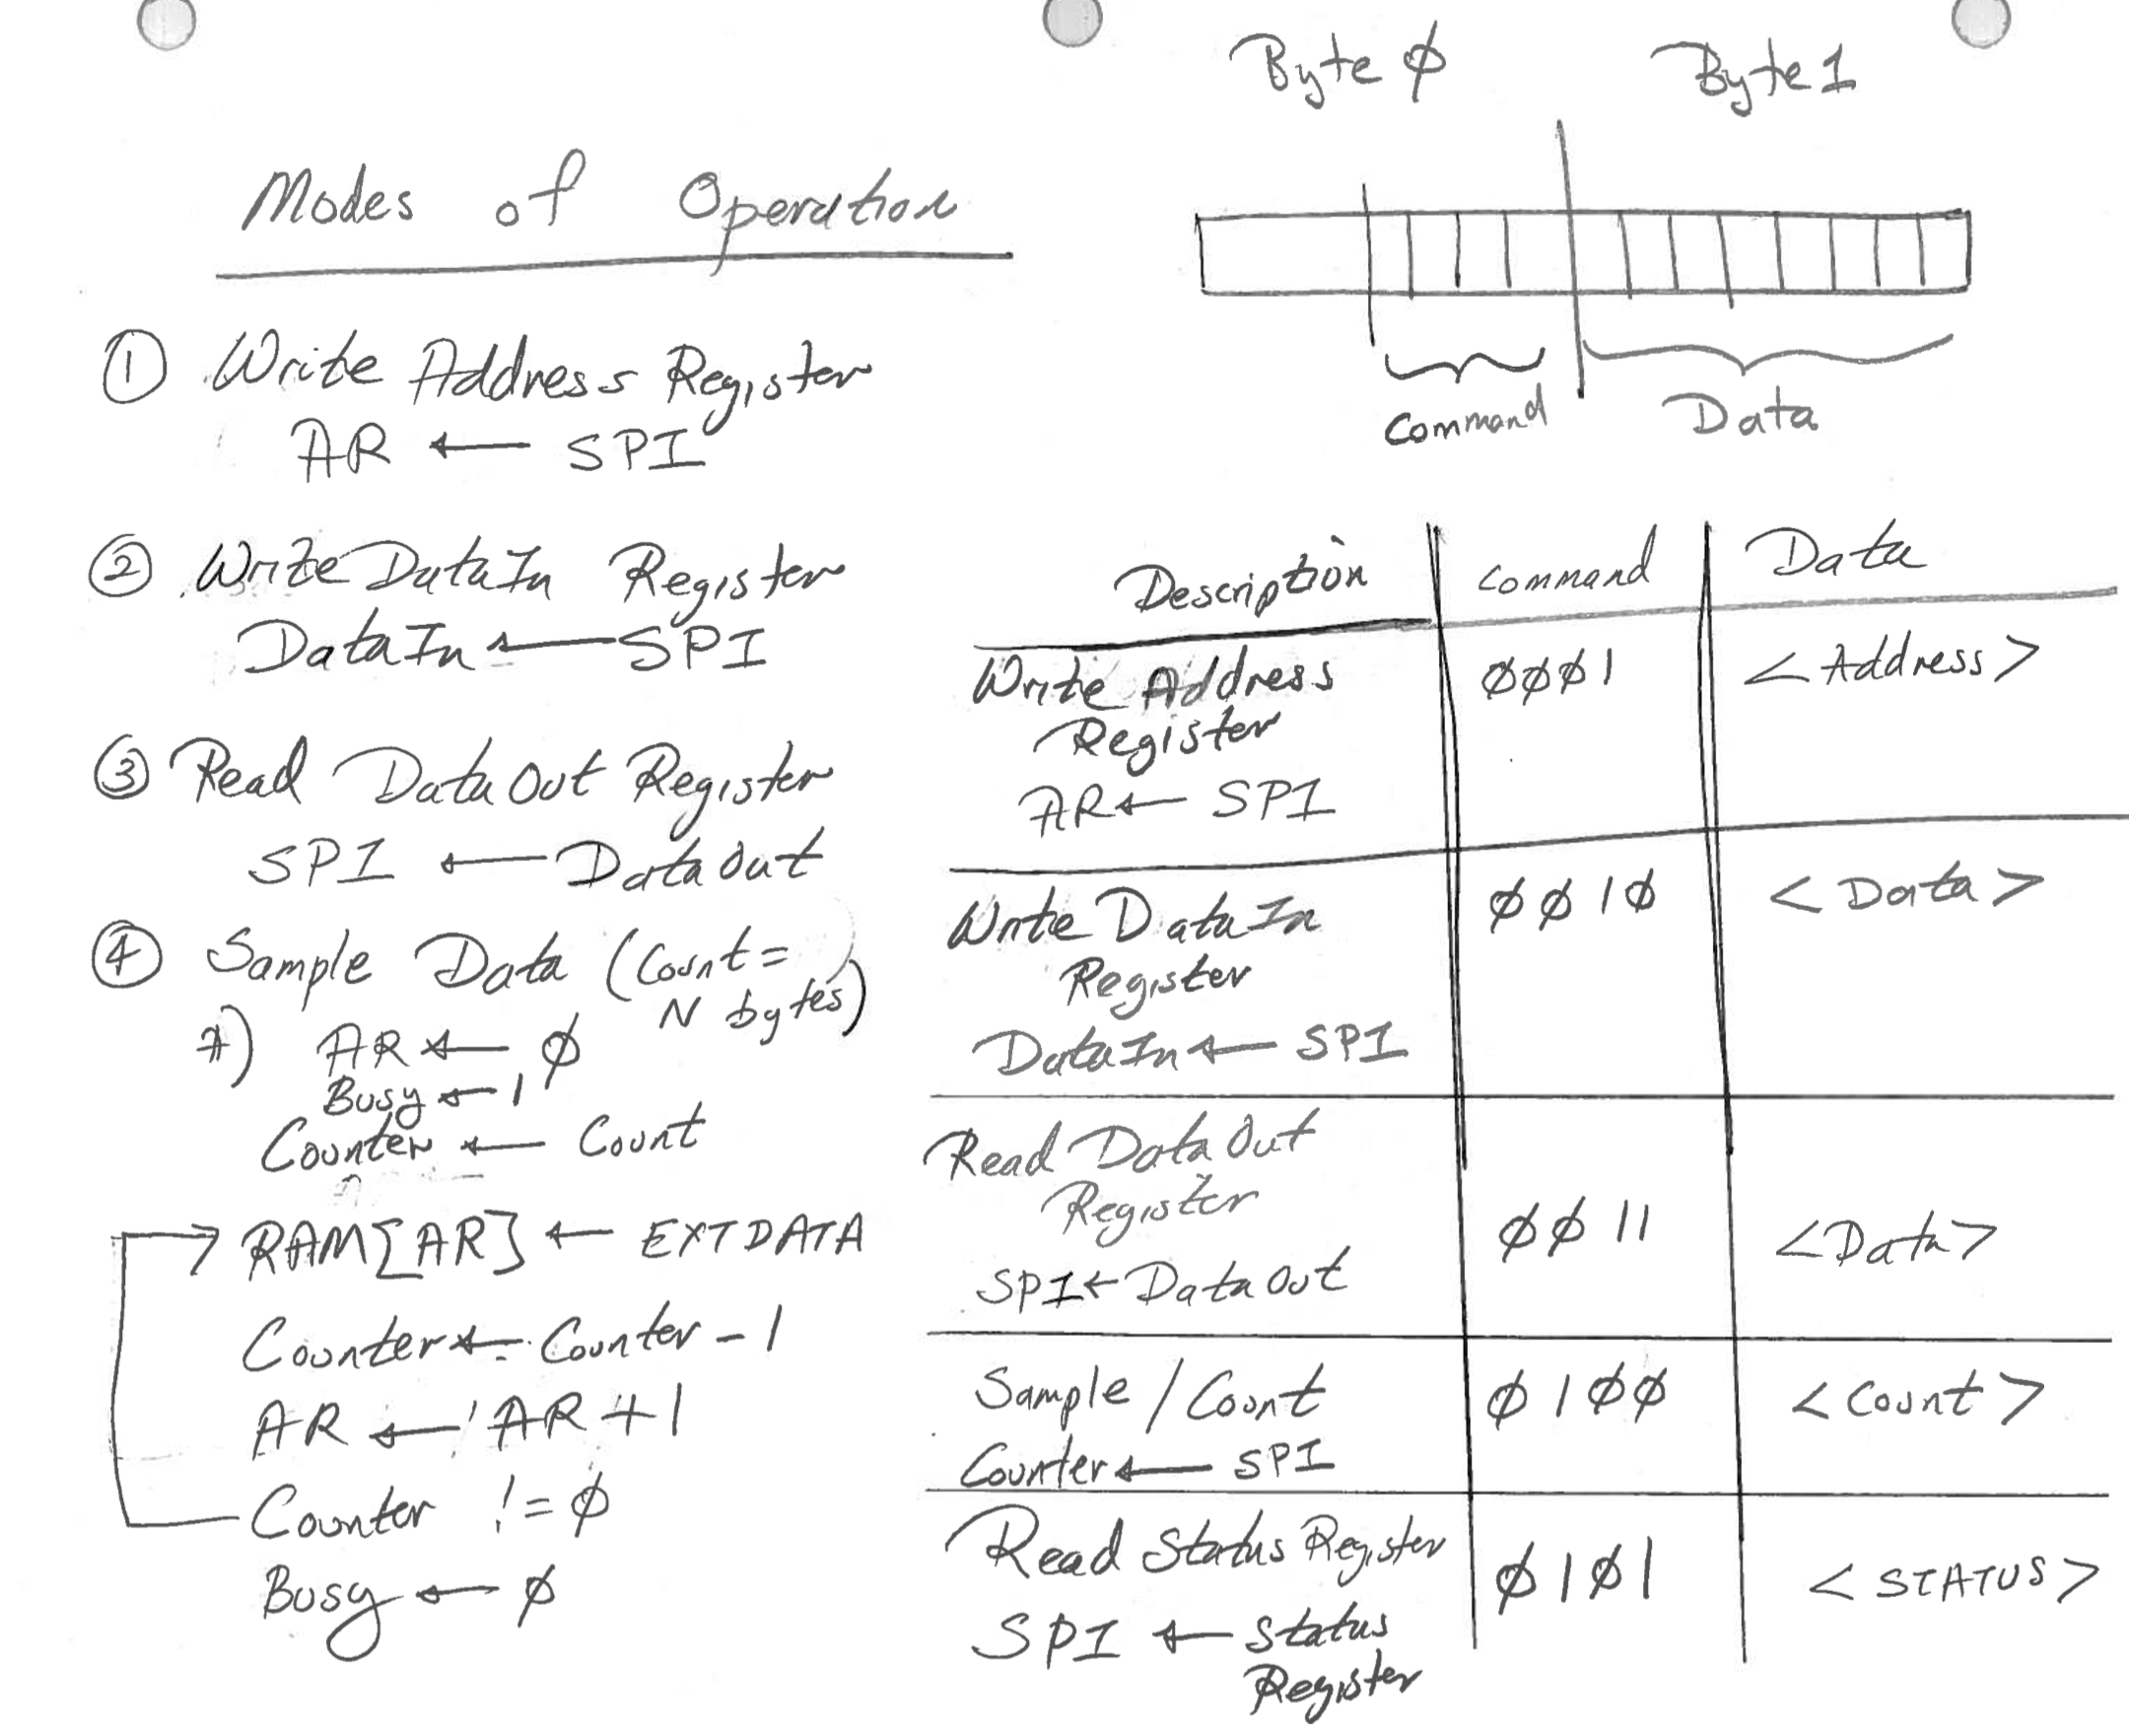 Modes of Operation
① Write Address Register
AR ← SPI
② Write DataIn Register
DataIn ← SPI
③ Read DataOut Register
SPI ← DataOut
④ Sample Data (Count =
N bytes)
A) AR ← ∅
Busy ← 1
Counter ← Count
RAM[AR] ← EXTDATA
Counter ← Counter - 1
AR ← AR + 1
Counter != ∅
Busy ← ∅
Byte ∅ Byte 1
Command Data
Description Command Data
Write Address ∅∅∅1 <Address>
Register
AR ← SPI
Write DataIn ∅∅1∅ <Data>
Register
DataIn ← SPI
Read DataOut
Register ∅∅11 <Data>
SPI ← DataOut
Sample/Count ∅1∅∅ <Count>
Counter ← SPI
Read Status Register ∅1∅1 <STATUS>
SPI ← Status
Register